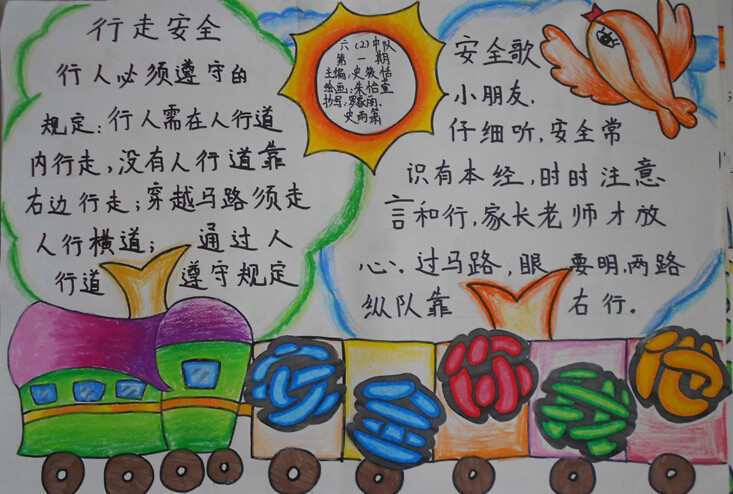 行走安全
行人必须遵守的
规定:行人需在人行道
内行走,没有人行道靠
右边行走;穿越马路须走
人行横道; 通过人
行道 遵守规定
六(2)中队
第一期
主编:史筱恬
绘画:朱怡萱
抄写:罗
史雨
安全歌
小朋友,
仔细听,安全常
识有本经,时时注意
言和行,家长老师才放
心、过马路,眼 要明,两路
纵队靠 右行。
安全你我他